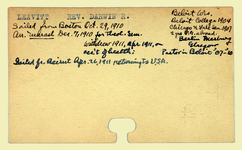 LEAVITT REV. DARWIN R.
Sailed from Boston Oct. 29, 1910
Arr. Dec. 7, 1910 for Theol. Sem.
Withdrew 1911, Apr. 1911, on
acc't of health.
Sailed fr. Beirut Apr. 26, 1911 returning to U.S.A.
Beloit, Wis.
Beloit College 1904
Chicago Sem. 1907
2 yrs. abroad
Berlin Marburg
Glasgow
Pastor in Beloit '07-